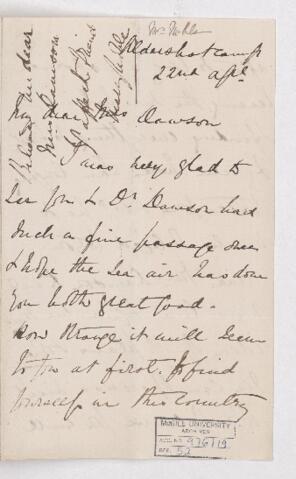 Aldershot Camp
22nd Apl
My dear Mrs Dawson
I was very glad to
see you & Dr Dawson had
such a fine passage over
& hope the sea air has done
you both great good.
How strange it will seem
to you at first to find
yourself in this country
Believe me dear
Mrs Dawson
Yr affect friend
McGILL UNIVERSITY
ARCHIVES
ACC. NO. 976/19
REF. 52